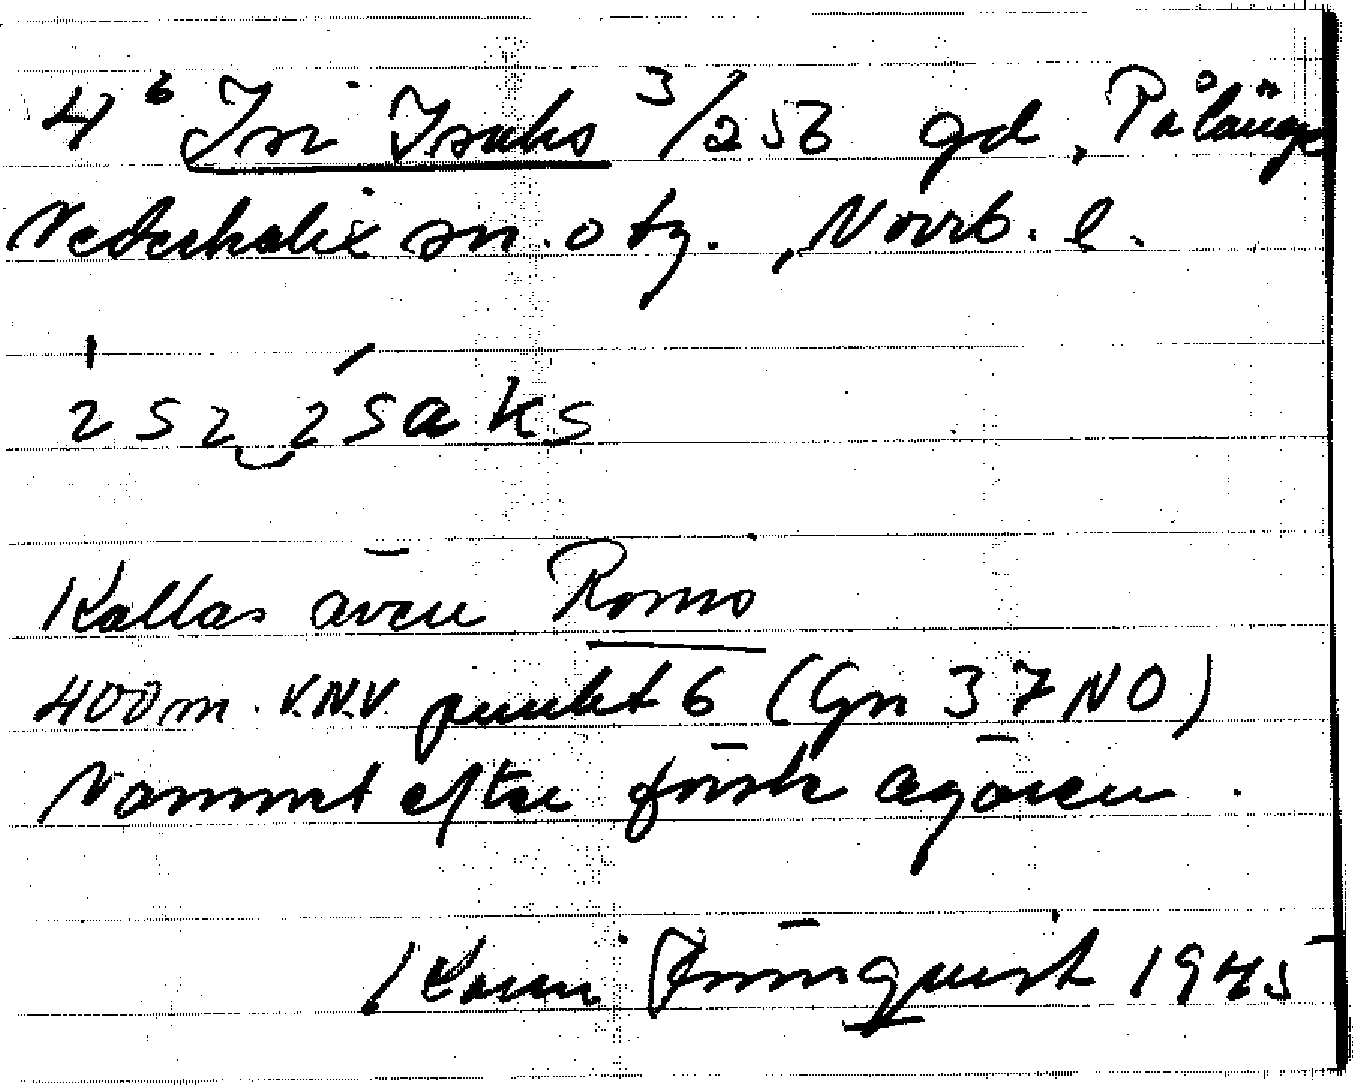 4⁶ Isi Isaks 3/256 gd, Pålänge
Nederkalix sn. o tg., Norrb. l.
ısı ısaks
Kallas även Romo
400 m. V.N.V. punkt 6 (Gn 37 NO)
Namnet efter förste ägaren.
Karin 1945